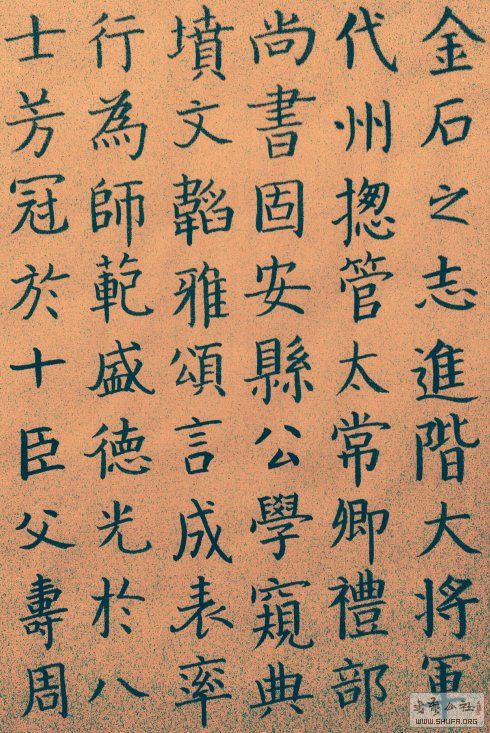 金石之志進階大將軍
代州揔管太常卿禮部
尚書固安縣公學窺典
墳文韜雅頌言成表率
行為師範盛德光於八
士芳冠於十臣父壽周
WWW.SHUFA.ORG